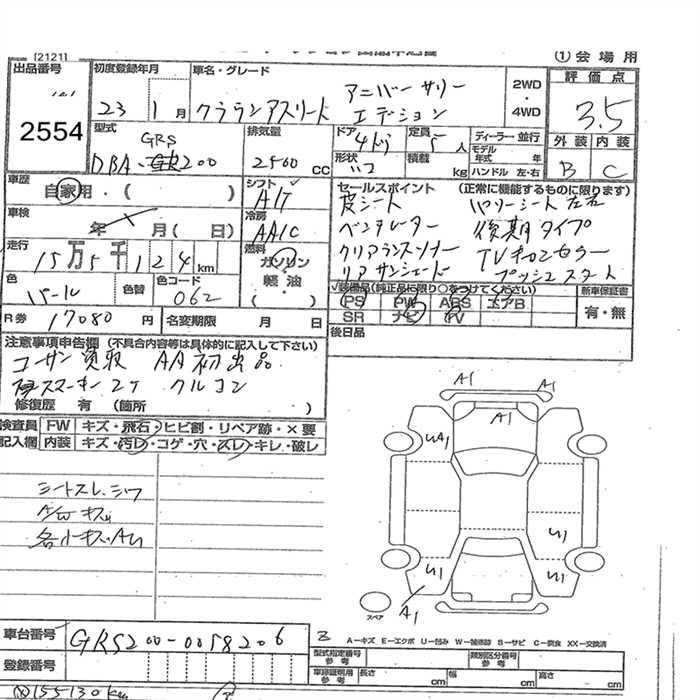 [2121]
①会場用
出品番号
2554
初度登録年月
23 1月
車名・グレード
クラウンアスリート
アニバーサリー
エディション
2WD
・
4WD
評価点
3.5
外装 内装
B C
型式
GRS
DBA- 200
排気量
2500 CC
ドア
4ドア
定員
5人
形状
ハコ
積載
kg
ディーラー・並行
モデル年式 年
ハンドル 左・右
車歴
自家用・( )
シフト
AIT
車検
年 月( 日)
冷房
AAIC
走行
15万5千124km
燃料
ガソリン
軽油
・( )
色
パール
色替
色コード
062
セールスポイント (正常に機能するものに限ります)
皮シート パワーシート左右
ベンチレーター 後期タイプ
クリアランスソナー TVキャンセラー
リアサンシェード プッシュスタート
装備品(純正品に限り○をつけてください)
PS PW ABS エアB
SR ナビ TV
新車保証書
有・無
後日品
R券 17080円
名変期限 月 日
注意事項申告欄(不具合内容等は具体的に記入して下さい)
ユーザー買取 AA初出品
スマーキー2ケ クルコン
修復歴 有 (箇所 )
検査員 FW キズ・飛石・ヒビ割・リペア跡・×要
記入欄 内装 キズ・汚レ・コゲ・穴・スレ・キレ・破レ
シートスレ、シワ
A/Wキズ
各小キズ・AU
A1 A1
A1
UA1
U1
U1 U1
A1
スペア
車台番号
GRS200-0058206
登録番号
A-キズ E-エクボ U-凹み W-補修跡 S-サビ C-腐食 XX-交換済
型式指定番号
参考
類別区分番号
参考
車録証明用
参考
長さ cm
幅 cm
高さ cm
155130km